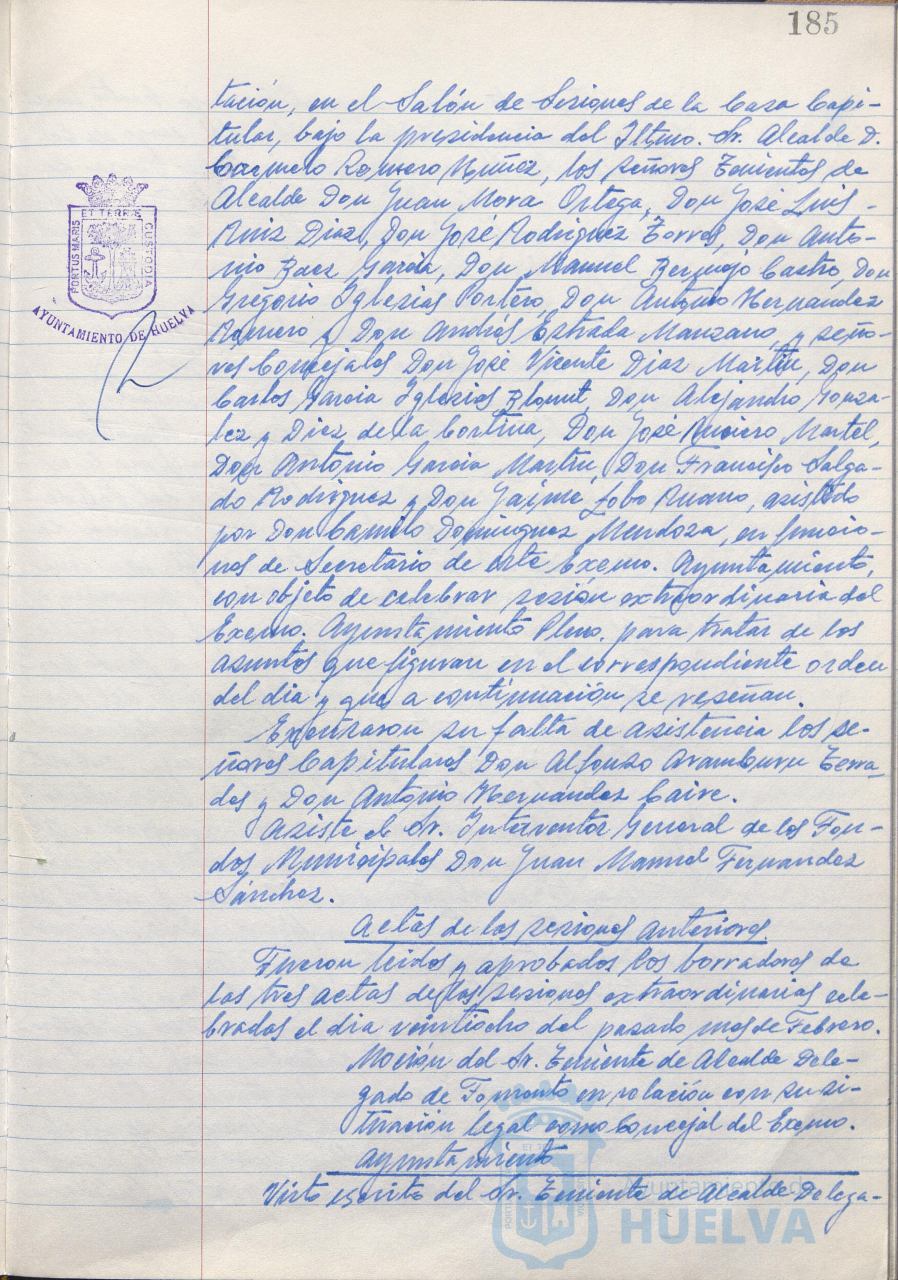 185
tación, en el Salón de Sesiones de la Casa Capi-
tular, bajo la presidencia del Iltmo. Sr. Alcalde D.
Carmelo Romero Núñez, los señores Tenientes de
Alcalde Don Juan Mora Ortega, Don José Luis
Ruiz Diaz, Don José Rodriguez Torres, Don Anto-
nio Baez García, Don Manuel Bermejo Castro, Don
Gregorio Iglesias Portero, Don Antonio Hernandez
Romero y Don Andrés Estrada Manzano, y seño-
res Concejales, Don José Vicente Diaz Martín, Don
Carlos Garcia Iglesias Don Alejandro Gonza-
lez y Diez de la Cortina, Don José Martel,
Don Antonio Garcia Martin, Don Francisco Salga-
do Rodriguez y Don Jaime Lobo Ruano, asistido
por Don Camilo Dominguez Mendoza, en funcio-
nes de Secretario de este Excmo. Ayuntamiento,
con objeto de celebrar sesión extraordinaria del
Excmo. Ayuntamiento Pleno, para tratar de los
asuntos que figuran en el correspondiente orden
del dia y que a continuación se reseñan.
Excusaron su falta de asistencia los se-
ñores Capitulares Don Alfonso Aramburu Terra-
des y Don António Hernández Caire.
Asiste el Sr. Interventor General de los Fon-
dos Municipales Don Juan Manuel Fernandez
Sánchez.
Actas de las sesiones anteriores
Fueron leidos y aprobados los borradores de
las tres actas de las sesiones extraordinarias cele-
bradas el dia veintiocho del pasado mes de Febrero.
Moción del Sr. Teniente de Alcalde Dele-
gado de Fomento en relación con su si-
tuación legal como Concejal del Excmo.
Ayuntamiento
Visto escrito del Sr. Teniente de Alcalde Delega-
PORTUS MARIS ET TERRÆ CUSTODIA
AYUNTAMIENTO DE HUELVA
Ayuntamiento de
HUELVA